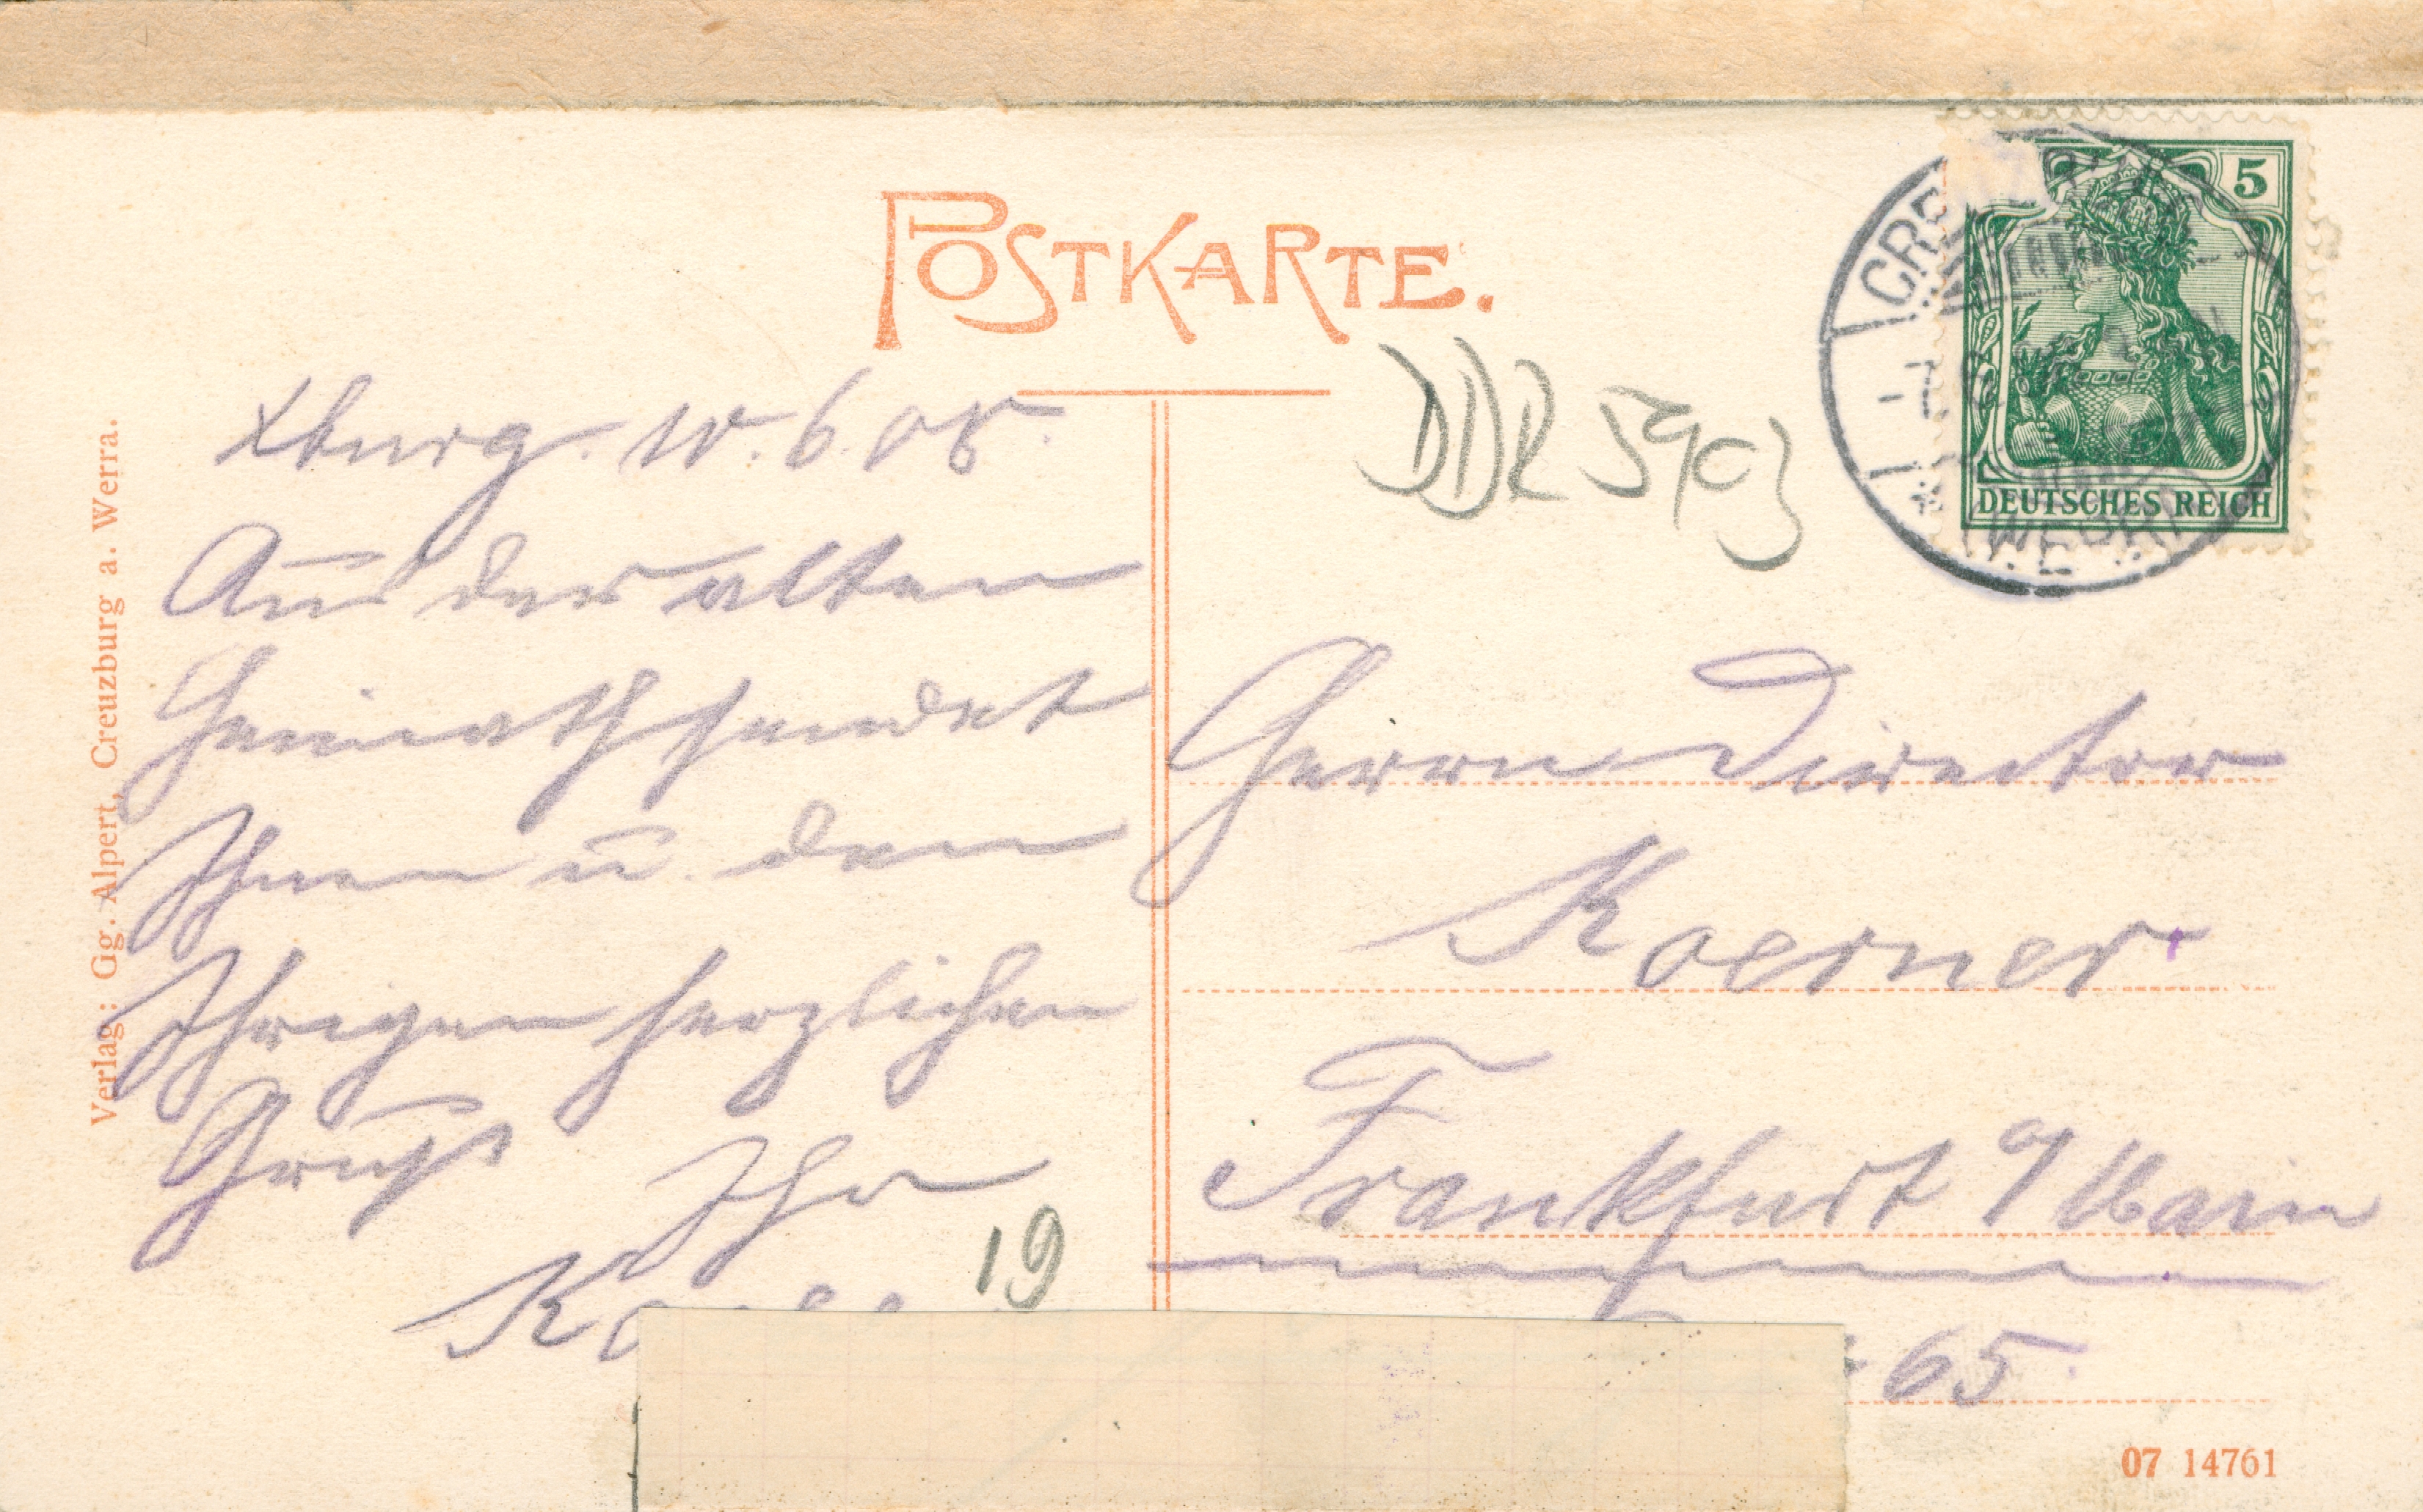 POSTKARTE.
5
DEUTSCHES REICH
CRE
(WERRA)
DDR 5903
Xburg. 10.6.08.
Aus der alten
Heimath sendet
Ihnen u. den
Ihrigen herzlichen
Gruß Ihr
19
Herrn Director
Koerner
Frankfurt a/Main
65.
Verlag: Gg. Alpert, Creuzburg a. Werra.
07 14761